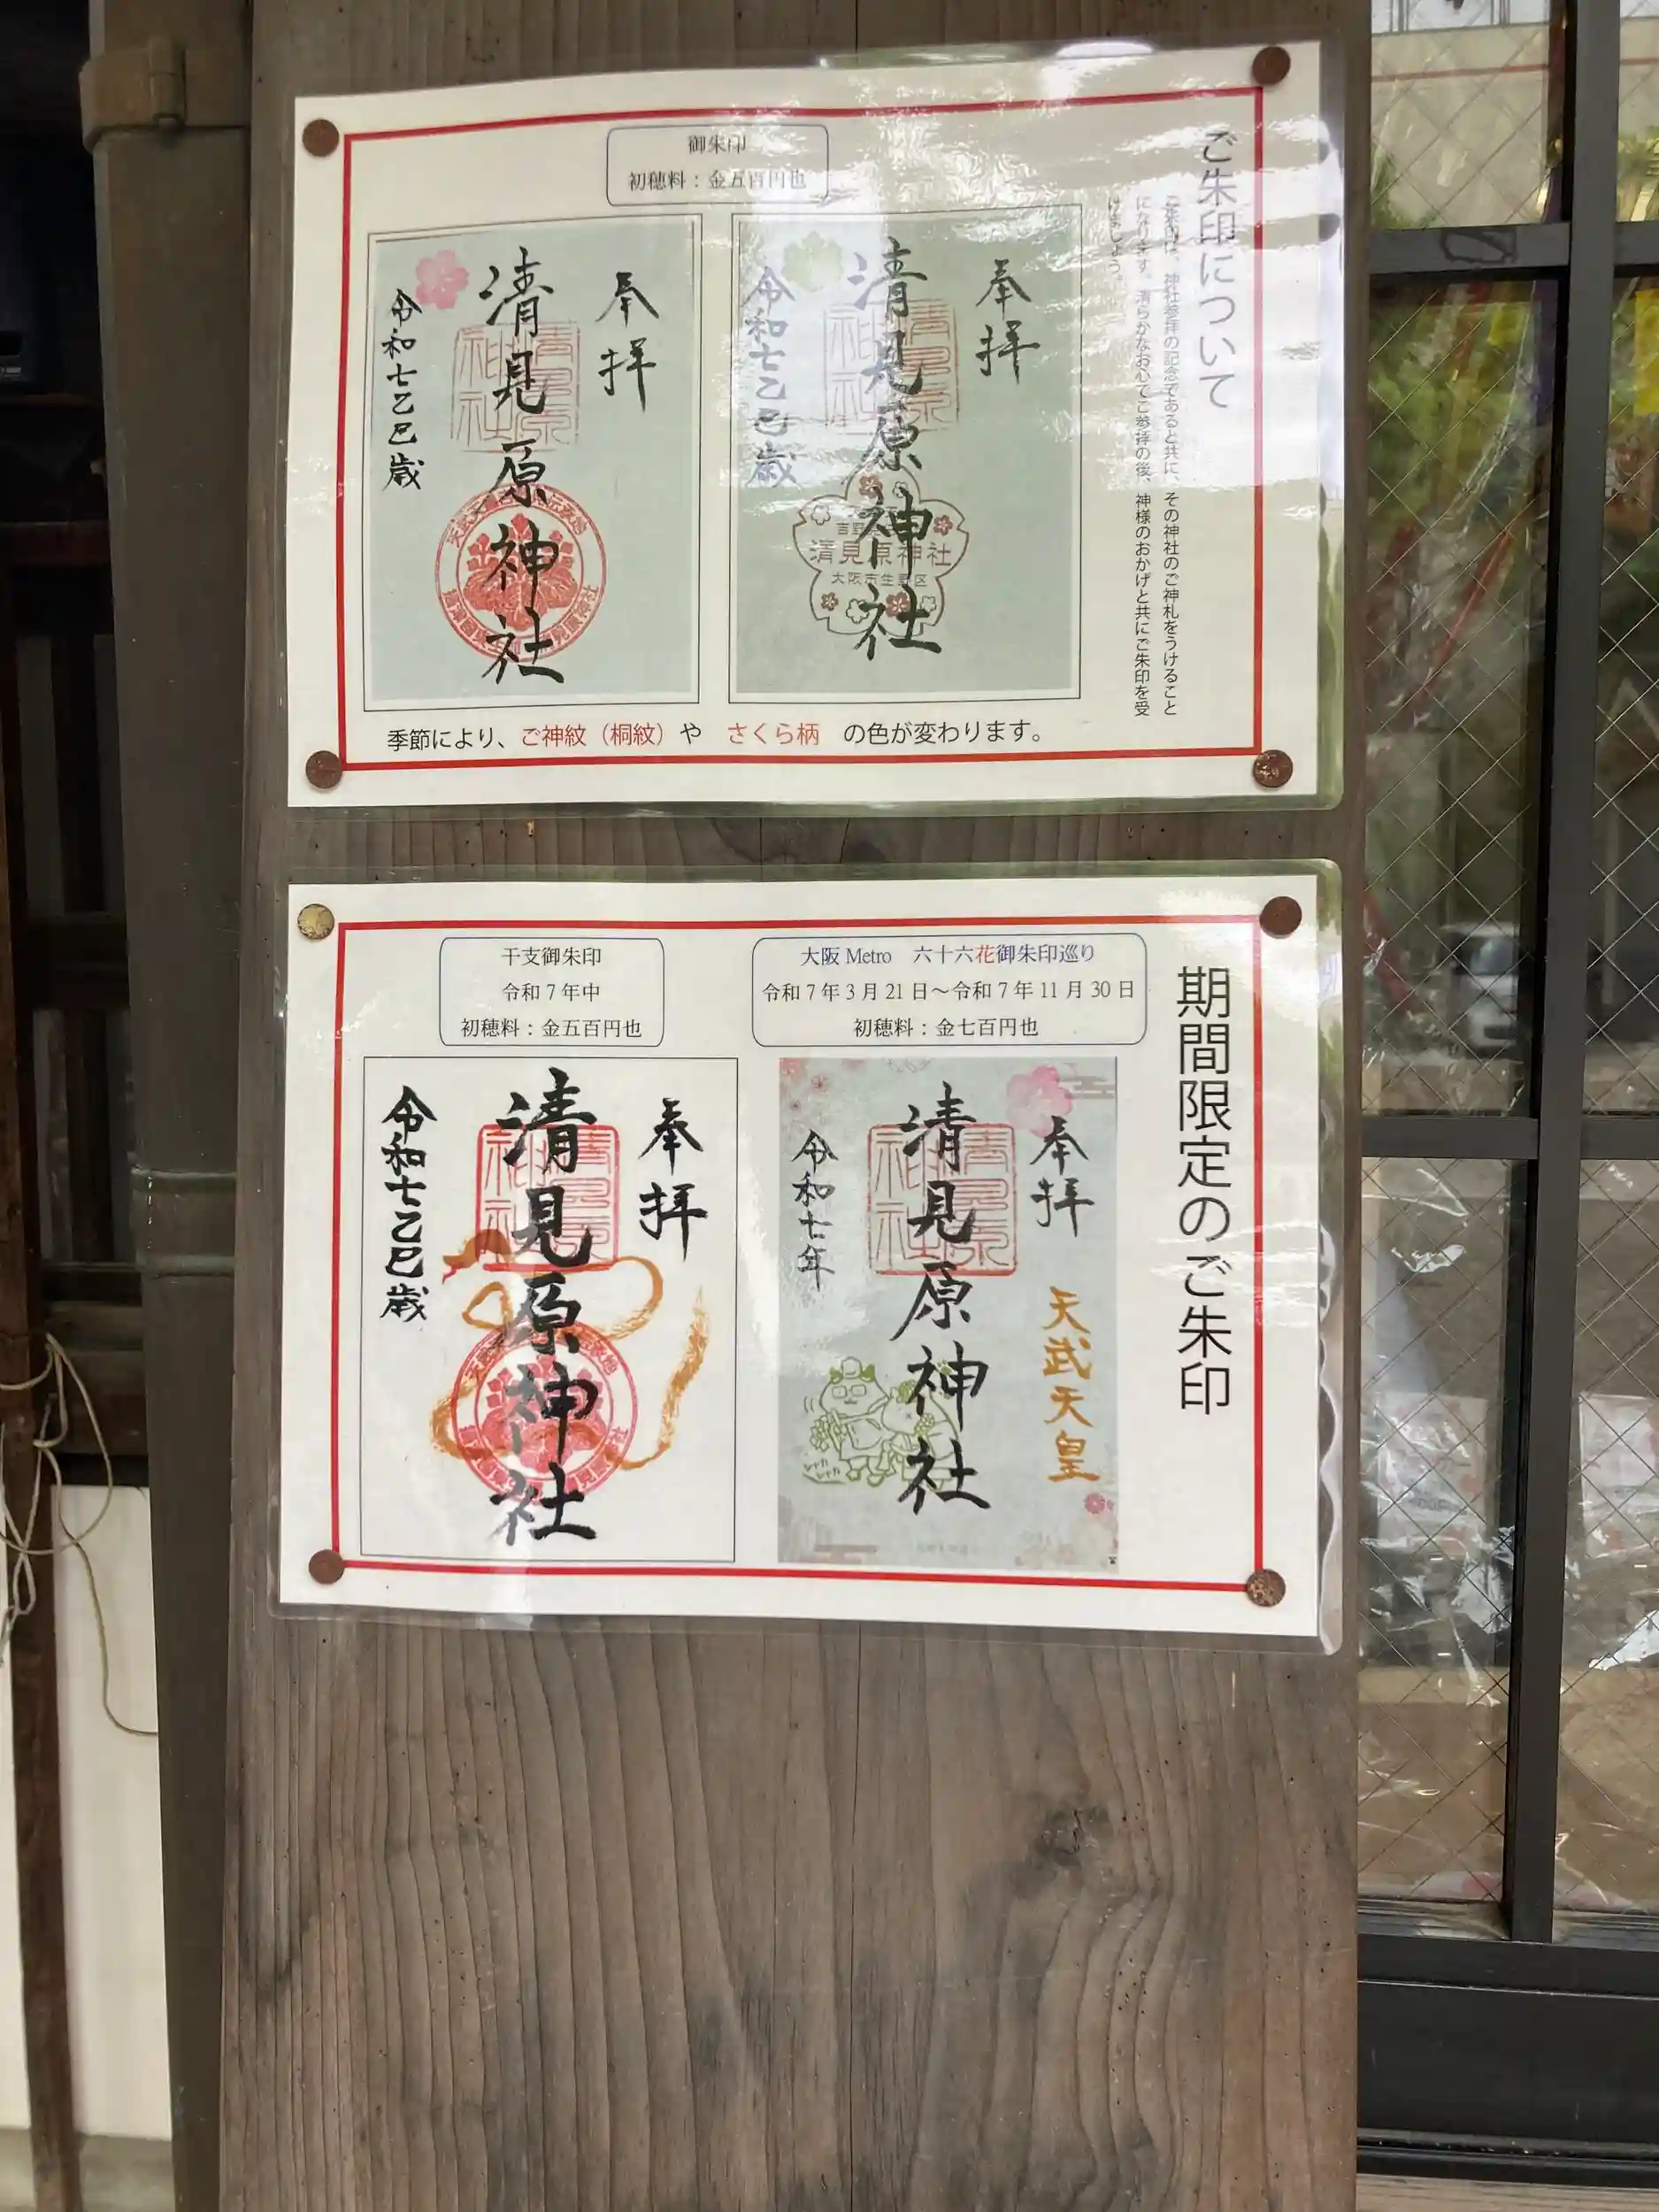 ご朱印について
ご朱印は、神社参拝の記念であると共に、その神社のご神札をうけること
になります。清らかなお心でご参拝の後、神様のおかげと共にご朱印を受
けましょう。
御朱印
初穂料：金五百円也
奉拝
清見原神社
令和七乙巳歳
清見原神社
大阪市生野区
奉拝
清見原神社
令和七乙巳歳
季節により、ご神紋（桐紋）や さくら柄 の色が変わります。
期間限定のご朱印
大阪 Metro 六十六花御朱印巡り
令和7年3月21日～令和7年11月30日
初穂料：金七百円也
奉拝
天武天皇
清見原神社
令和七年
干支御朱印
令和7年中
初穂料：金五百円也
奉拝
清見原神社
令和七乙巳歳